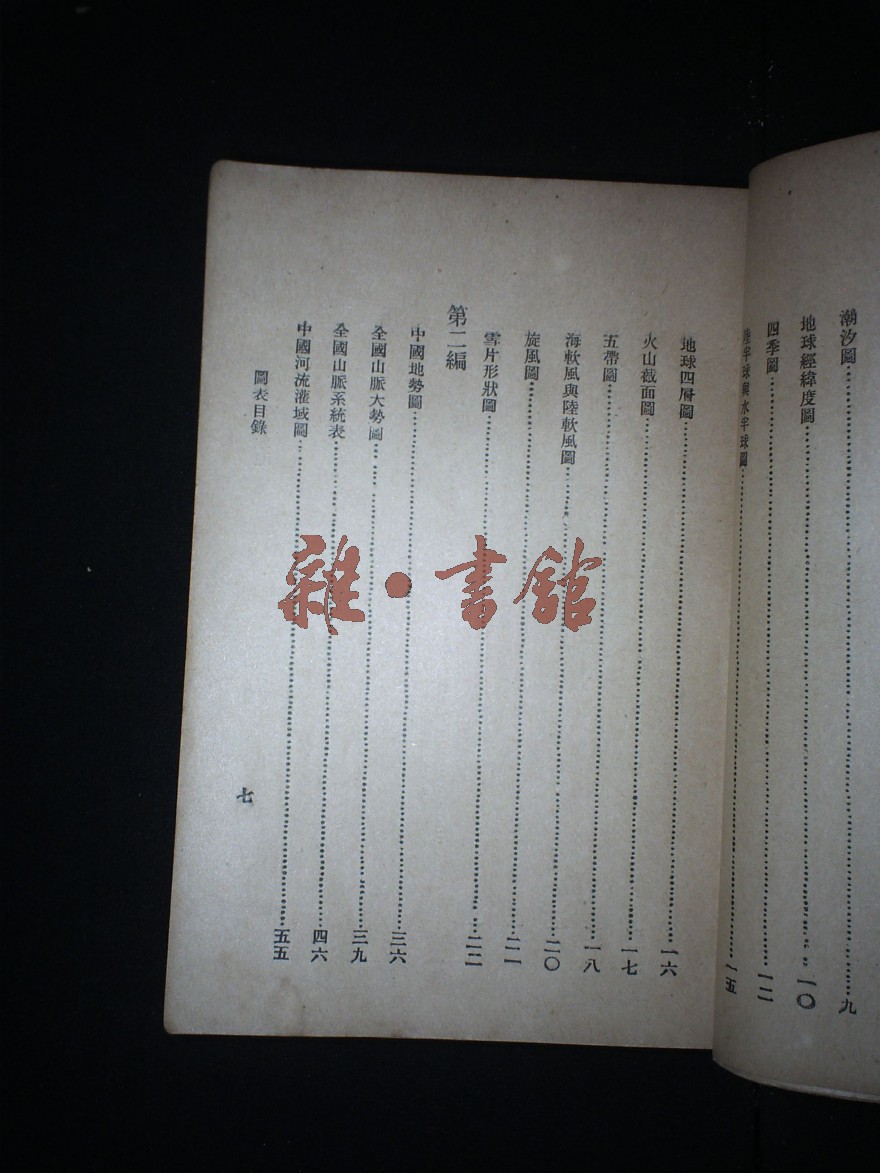 潮汐圖……九
地球經緯度圖……一〇
四季圖……一二
陸半球與水半球圖……一五
地球四層圖……一六
火山截面圖……一七
五帶圖……一八
海軟風與陸軟風圖……二〇
旋風圖……二一
雪片形狀圖……二二
第二編
中國地勢圖……三六
全國山脈大勢圖……三九
全國山脈系統表……四六
中國河流灌域圖……五五
圖表目錄
七
雜·書館